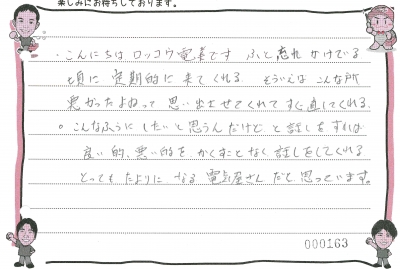 楽しみにお待ちしております。
・こんにちは ロッコウ電美です ふと忘れかけている
頃に 定期的に 来てくれる. そういえば こんな所
悪かったよねって 思い出させてくれて すぐ直してくれる.
。こんなふうに したいと思うんだけど と話しをすれば
良い的、悪い的を かくすことなく 話しをしてくれる
とっても たよりに なる 電気屋さん だと 思っています。
000163